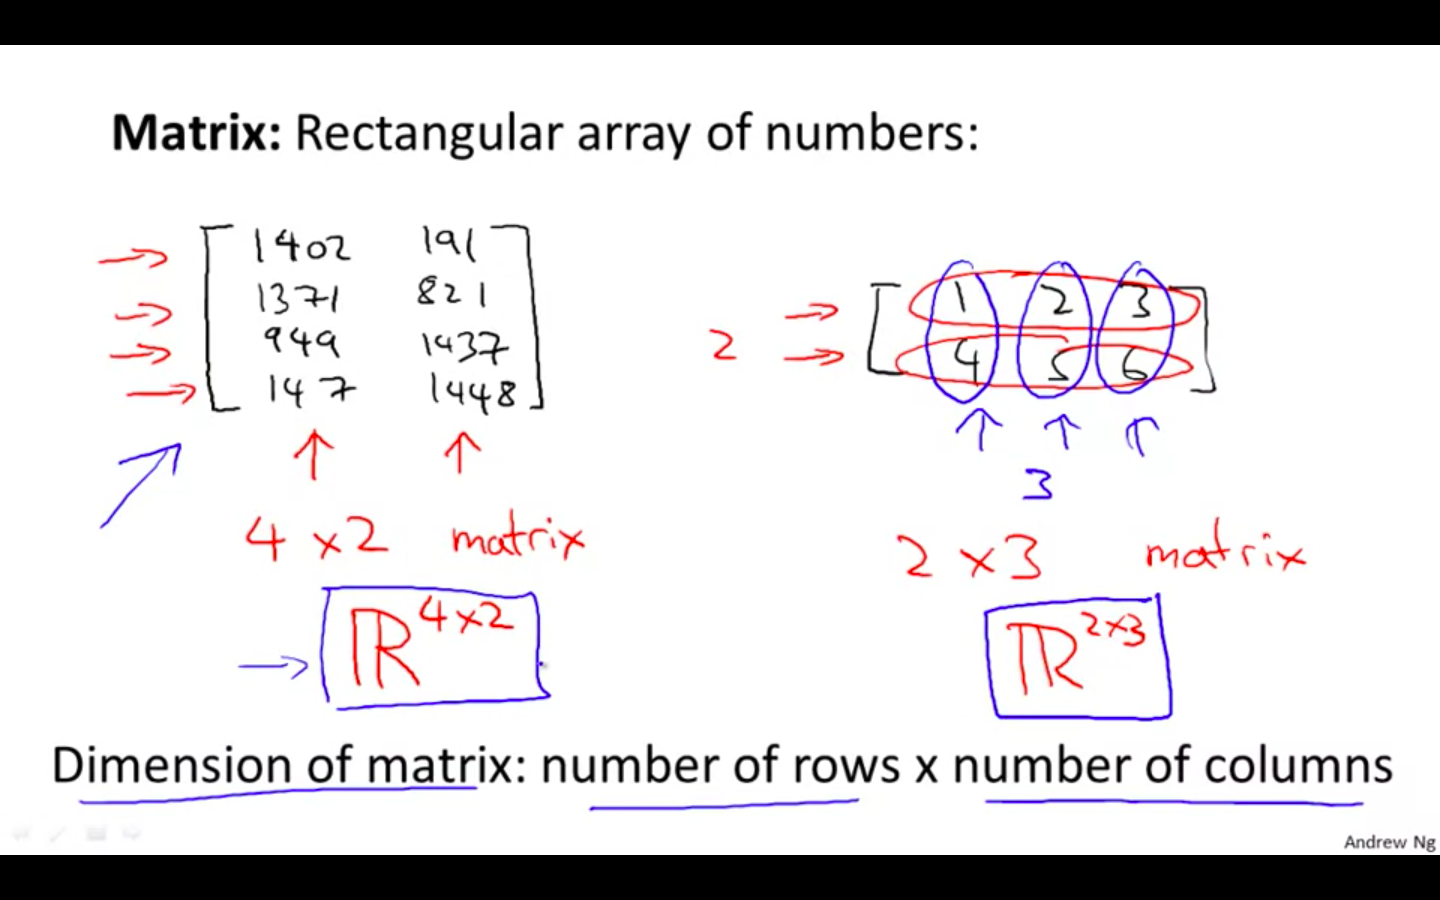 Matrix: Rectangular array of numbers:
1402 191
1371 821
949 1437
147 1448
4 x 2 matrix
ℝ^4x2
2
1 2 3
4 5 6
3
2 x 3 matrix
ℝ^2x3
Dimension of matrix: number of rows x number of columns
Andrew Ng